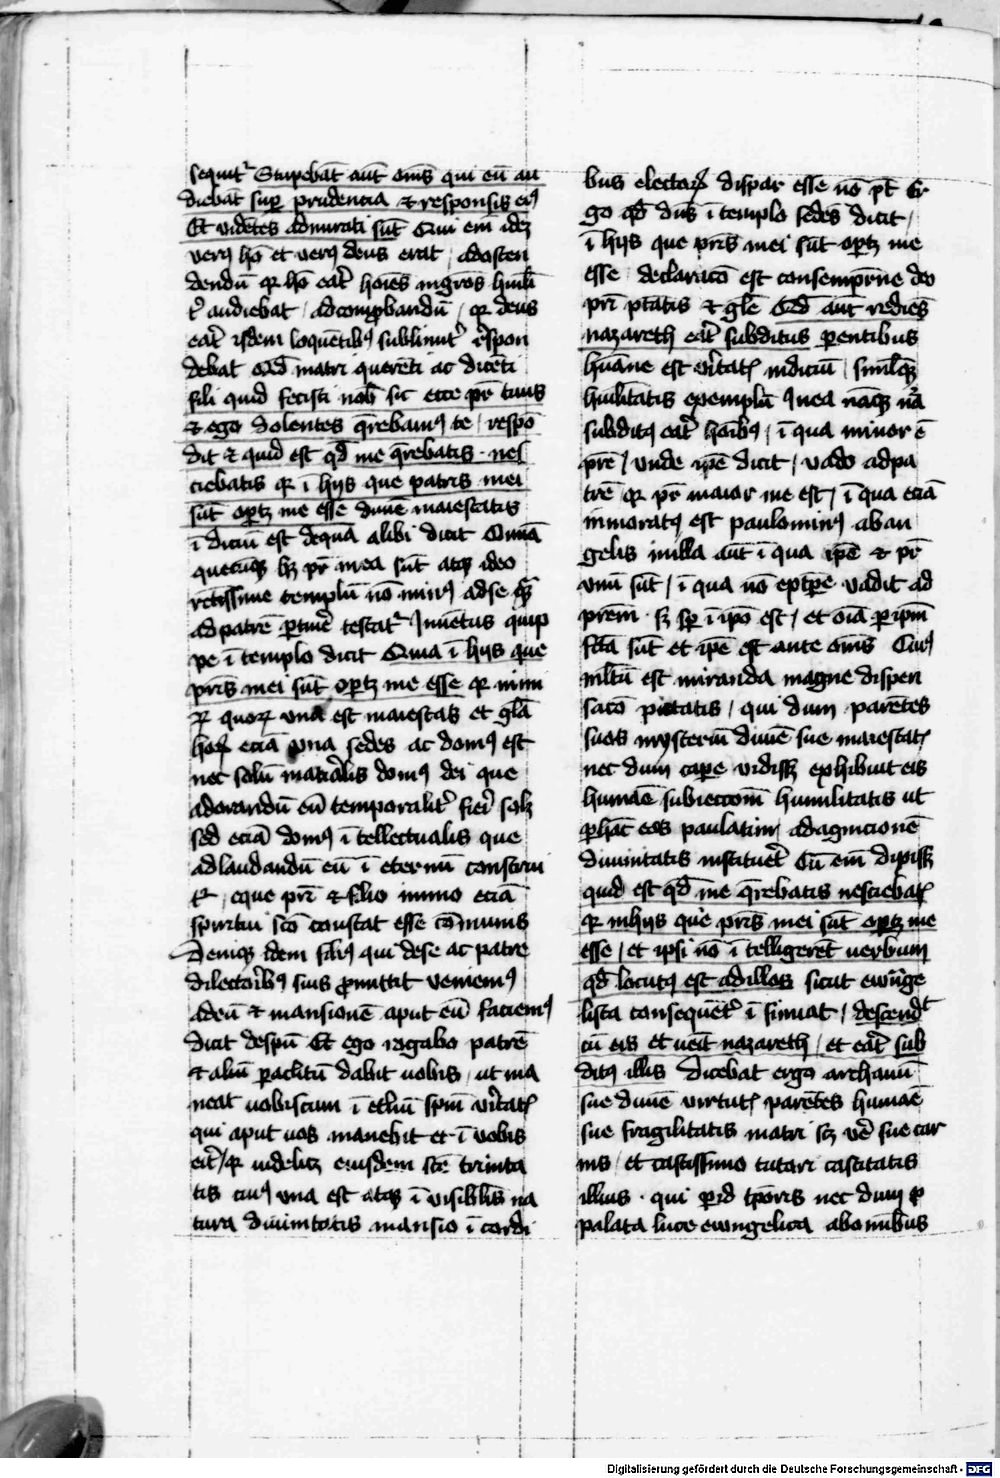 sequit᷑ Stupebāt aūt om̄s qui eū au
diebāt suꝑ prudencia ⁊ responsis eiꝰ
Et vidētes admirati sūt Qui em̄ idē
verꝰ hō et verꝰ deus erat / ad osten
dendū qꝛ hō eāt hoīes nigros huīlit
audiebat / ad comꝓbandū / qꝛ deus
eāt ijsdem loquētibꝰ sublimit᷑ respon
debat Qd̄ matri querēti ac dicēti
fili quid fecisti nob̄ sic ecce pr̄ tuus
⁊ ego dolentes q̄rebamꝰ te / respō
dit ⁊ quid est qd̄ me q̄rebatis · nes
ciebatis qꝛ ī hijs que patris mei
sūt oportꝫ me esse diuīe maiestatis
ī diciū est de quā alibi dicit Omīa
quecūqꝫ hꝫ pr̄ mea sūt atqꝫ ideo
rectissime templū nō minꝰ ad se q̄
ad patrē ꝑtinē testat᷑ Inuētus quip
pe ī templo dicit Quia ī hijs que
pr̄is mei sūt oportꝫ me esse qꝛ nimi
rꝝ quoꝝ vna est maiestas et gl̄a
hoꝝ eciā vna sedes ac domꝰ est
nec solū materialis domꝰ dei que
adorandū eū temporalit᷑ fieri solꝫ
sed eciā domꝰ ītellectualis que
ad laudandū eū ī eternū construi
t᷑ / eque pr̄i ⁊ filio immo eciā
spiritui scō constat esse cōmunis
Deniqꝫ idem filiꝰ qui de se ac patre
dilectoribꝰ suis ꝓmittit veniemꝰ
ad eū ⁊ mansionē aput eū faciemꝰ
dicit de spū Et ego rogabo patrē
⁊ aliū paclitū dabit vobis / ut ma
neat vobiscum ī etnū spm̄ vītatꝭ
qui aput uos manebit et ī vobis
eit / qꝛ videlicꝫ eiusdem scē trinita
tis cuiꝰ vna est atqꝫ īuisibilis na
tura diuinitatis mansio ī cordi
bus electoꝝ dispar esse nō pt̄ Er
go qd̄ dn̄s ī templo sedēs dicit /
ī hijs que pr̄is mei sūt oportꝫ me
esse / declaracō est consempīne deo
pr̄i ptatis ⁊ gl̄e Qd̄ aūt rediēs
nazareth eāt subditus ꝑentibus
hūane est vītatꝭ indiciū / similqꝫ
huīlitatis exemplū In ea naqꝫ nā
subditꝰ eāt hoībꝰ / ī qua minor ē
pr̄e / vnde ip̄e dicit / vado ad pa
trē qꝛ pr̄ maior me est / ī qua eciā
minoratꝰ est paulominꝰ ab an
gelis in illa aūt ī qua ip̄e ⁊ pr̄
vnū sūt / ī qua nō ex tp̄e vadit ad
prem · sꝫ sp̄ ī ipo est / et oīa ꝑ ipm̄
fc̄a sūt et ip̄e est ante om̄s Cuiꝰ
mltū est miranda magne dispen
sacō pietatis / qui dum parētes
suos mysteriū diuīe sue maiestatꝭ
nec dum capere vidissꝫ exhibuit eis
humāe subieccom̄ humilitatis ut
ꝑ hāc eos paulatim ad agnicionē
diuinitatis institueret Cū em̄ dixissꝫ
quid est qd̄ me q̄rebatis nesciebatꝭ
qꝛ in hijs que pr̄is mei sūt oportꝫ me
esse / et ipsi nō ītelligerēt verbum
qd̄ locutꝰ est ad illos sicut ewāge
lista consequēt᷑ īsinuat / descendit
cū eis et ueīt nazareth / et eāt sub
ditꝰ illis Dicebat ergo archanū
sue diuīe virtutꝭ parētes humāe
sue fragilitatis matri scꝫ vē sue car
nis / et castissimo tutori castitatis
illius · qui ꝑ id tp̄oris nec dum ꝓ
palata luce ewangelica ab omībus